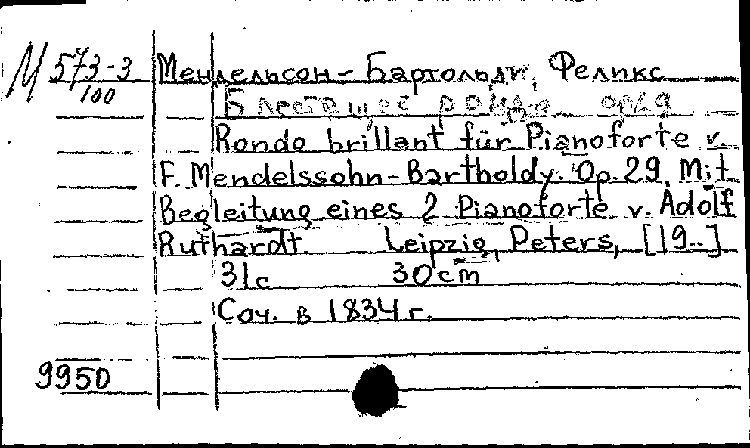 М 573-3 Мендельсон-Бартольди, Феликс
100 Блестящее рондо
Rondo brillant für Pianoforte v.
F. Mendelssohn-Bartholdy. Op. 29. Mit
Begleitung eines 2 Pianoforte v. Adolf
Ruthardt. Leipzig, Peters, [19..]
31с 30cm
Соч. в 1834 г.
9950